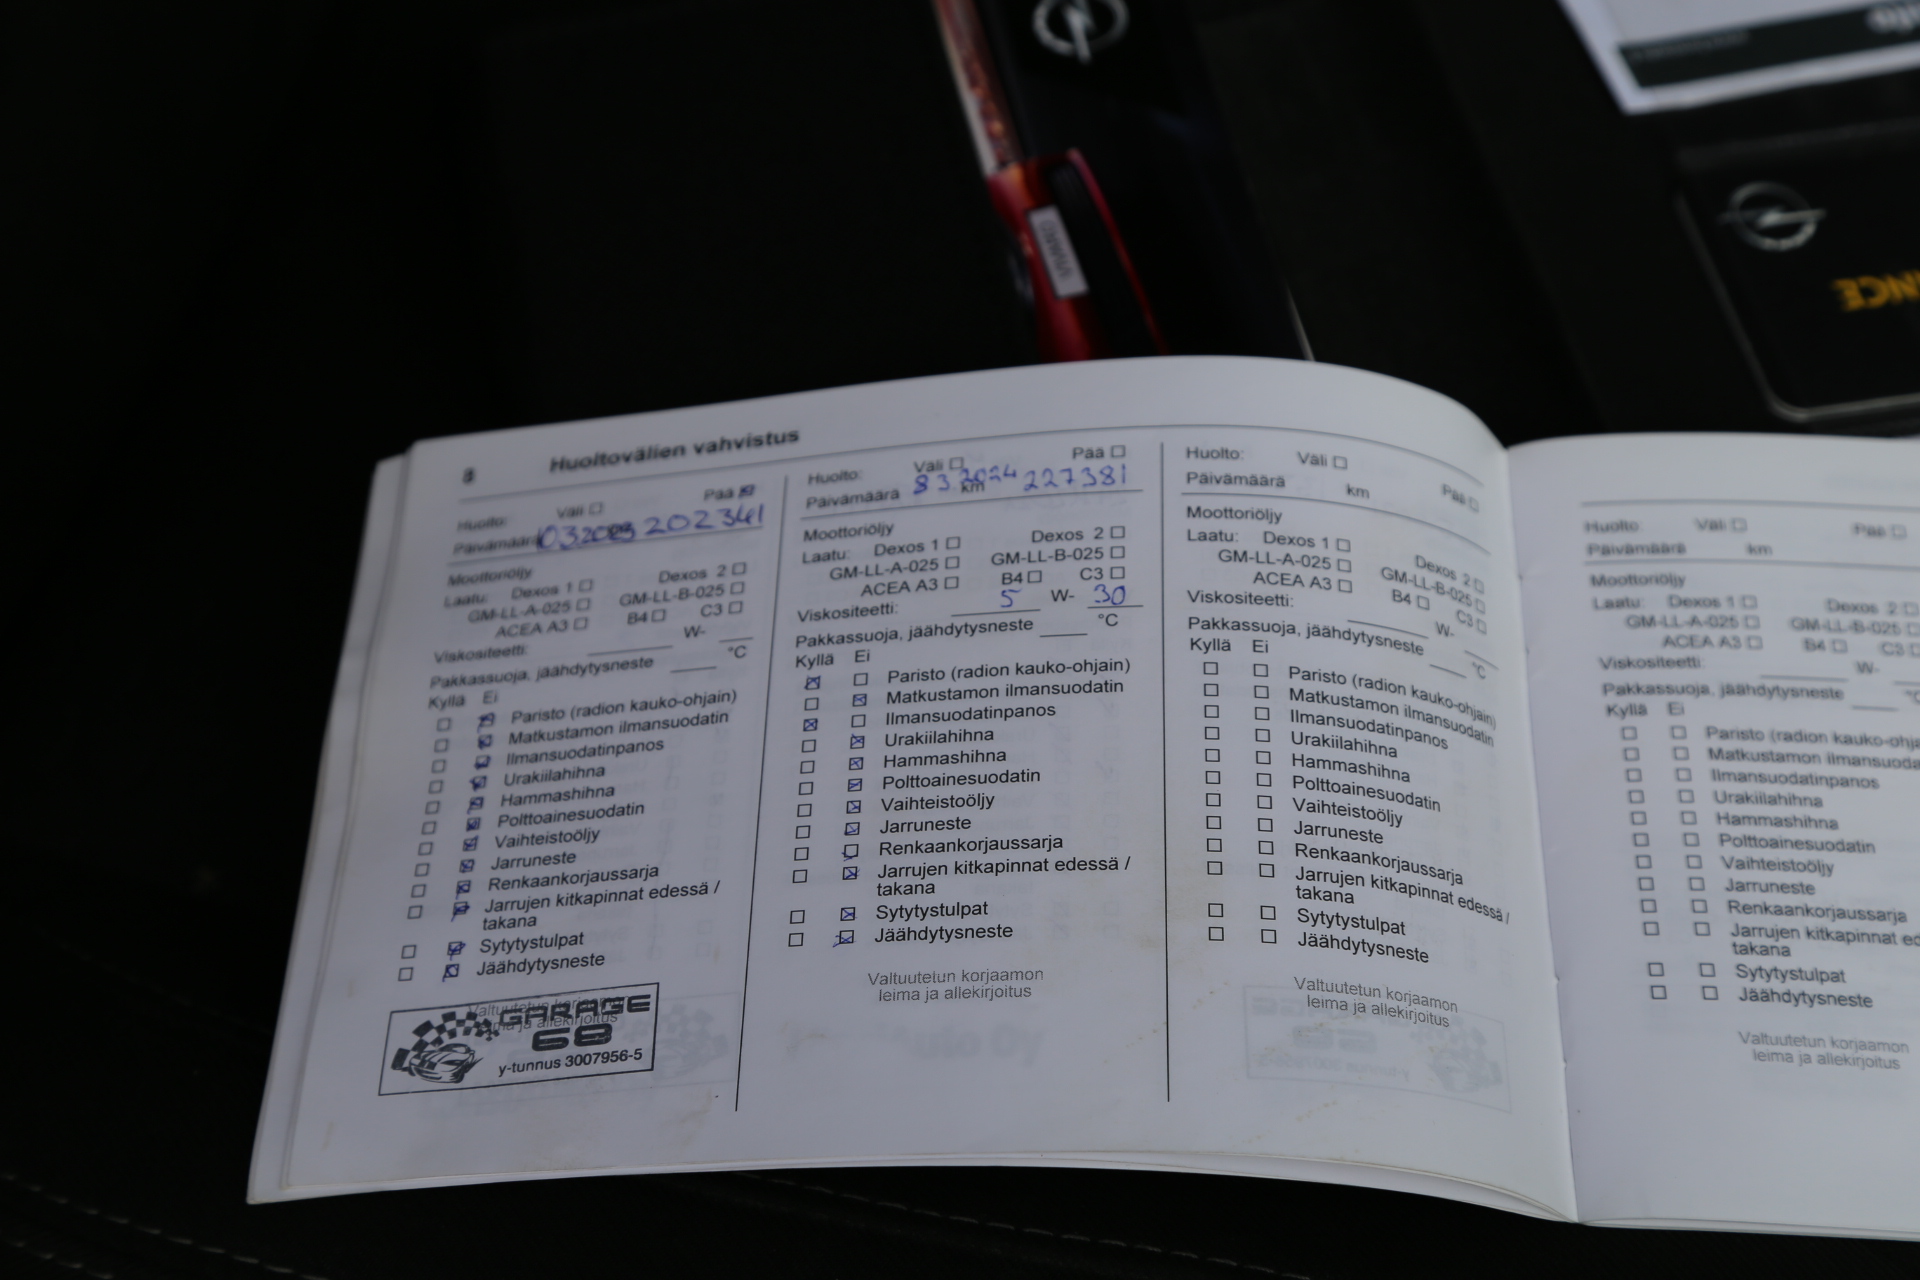 8 Huoltovälien vahvistus
Huolto: Väli ☐ Pää ☒
Päivämäärä 202341
Moottoriöljy
Laatu: Dexos 1 ☐ Dexos 2 ☐
GM-LL-A-025 ☐ GM-LL-B-025 ☐
ACEA A3 ☐ B4 ☐ C3 ☐
Viskositeetti: ____ W- ____
Pakkassuoja, jäähdytysneste ____ °C
Kyllä Ei
☐ ☒ Paristo (radion kauko-ohjain)
☐ ☒ Matkustamon ilmansuodatin
☐ ☒ Ilmansuodatinpanos
☐ ☒ Urakiilahihna
☐ ☒ Hammashihna
☐ ☒ Polttoainesuodatin
☐ ☒ Vaihteistoöljy
☐ ☒ Jarruneste
☐ ☒ Renkaankorjaussarja
☐ ☒ Jarrujen kitkapinnat edessä /
takana
☐ ☒ Sytytystulpat
☐ ☒ Jäähdytysneste
Valtuutetun korjaamon
leima ja allekirjoitus
GARAGE
68
y-tunnus 3007956-5
Huolto: Väli ☐ Pää ☐
Päivämäärä 8 3 2024 km 227381
Moottoriöljy
Laatu: Dexos 1 ☐ Dexos 2 ☐
GM-LL-A-025 ☐ GM-LL-B-025 ☐
ACEA A3 ☐ B4 ☐ C3 ☐
Viskositeetti: 5 W- 30
Pakkassuoja, jäähdytysneste ____ °C
Kyllä Ei
☒ ☐ Paristo (radion kauko-ohjain)
☐ ☒ Matkustamon ilmansuodatin
☒ ☐ Ilmansuodatinpanos
☐ ☒ Urakiilahihna
☐ ☒ Hammashihna
☐ ☒ Polttoainesuodatin
☐ ☒ Vaihteistoöljy
☐ ☒ Jarruneste
☐ ☒ Renkaankorjaussarja
☐ ☒ Jarrujen kitkapinnat edessä /
takana
☐ ☒ Sytytystulpat
☐ ☒ Jäähdytysneste
Valtuutetun korjaamon
leima ja allekirjoitus
Huolto: Väli ☐ Pää ☐
Päivämäärä km
Moottoriöljy
Laatu: Dexos 1 ☐ Dexos 2 ☐
GM-LL-A-025 ☐ GM-LL-B-025 ☐
ACEA A3 ☐ B4 ☐ C3 ☐
Viskositeetti: ____ W- ____
Pakkassuoja, jäähdytysneste ____ °C
Kyllä Ei
☐ ☐ Paristo (radion kauko-ohjain)
☐ ☐ Matkustamon ilmansuodatin
☐ ☐ Ilmansuodatinpanos
☐ ☐ Urakiilahihna
☐ ☐ Hammashihna
☐ ☐ Polttoainesuodatin
☐ ☐ Vaihteistoöljy
☐ ☐ Jarruneste
☐ ☐ Renkaankorjaussarja
☐ ☐ Jarrujen kitkapinnat edessä /
takana
☐ ☐ Sytytystulpat
☐ ☐ Jäähdytysneste
Valtuutetun korjaamon
leima ja allekirjoitus
Huolto: Väli ☐ Pää ☐
Päivämäärä km
Moottoriöljy
Laatu: Dexos 1 ☐ Dexos 2 ☐
GM-LL-A-025 ☐ GM-LL-B-025 ☐
ACEA A3 ☐ B4 ☐ C3 ☐
Viskositeetti: ____ W-
Pakkassuoja, jäähdytysneste ____ °C
Kyllä Ei
☐ ☐ Paristo (radion kauko-ohja
☐ ☐ Matkustamon ilmansuoda
☐ ☐ Ilmansuodatinpanos
☐ ☐ Urakiilahihna
☐ ☐ Hammashihna
☐ ☐ Polttoainesuodatin
☐ ☐ Vaihteistoöljy
☐ ☐ Jarruneste
☐ ☐ Renkaankorjaussarja
☐ ☐ Jarrujen kitkapinnat ed
takana
☐ ☐ Sytytystulpat
☐ ☐ Jäähdytysneste
Valtuutetun korjaamon
leima ja allekirjoitus